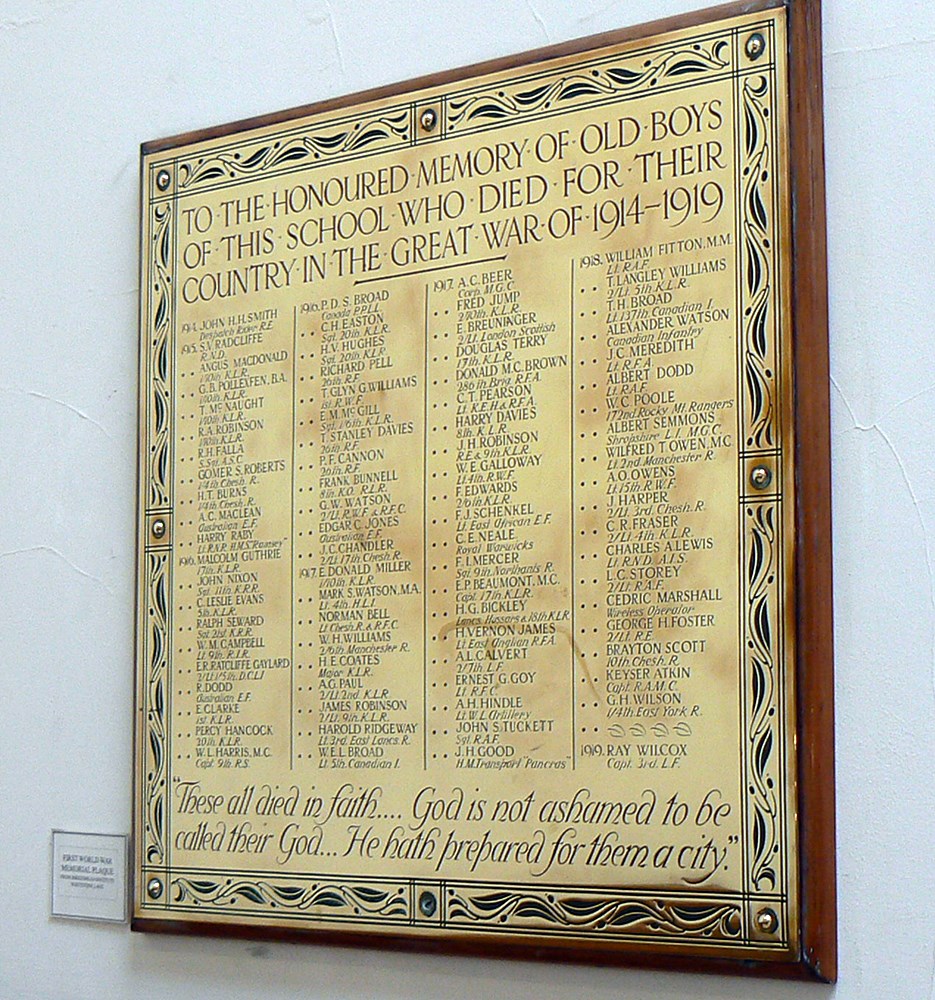 TO·THE·HONOURED·MEMORY·OF·OLD·BOYS
OF·THIS·SCHOOL·WHO·DIED·FOR·THEIR
COUNTRY·IN·THE·GREAT·WAR·OF·1914–1919
1914. JOHN H.H. SMITH
Despatch Rider R.E.
1915. S.V. RADCLIFFE
R.N.D.
. . ANGUS MACDONALD
1/10th K.L.R.
. . G.B. POLLEXFEN, B.A.
1/10th K.L.R.
. . T. McNAUGHT
1/10th K.L.R.
. . R.A. ROBINSON
1/10th K.L.R.
. . R.H. FALLA
S.Sgt. A.S.C.
. . GOMER S. ROBERTS
1/4th Chesh. R.
. . H.T. BURNS
1/4th Chesh. R.
. . A.C. MACLEAN
Australian E.F.
. . HARRY RABY
Lt. R.N.R. H.M.S. "Ramsey"
1916. MALCOLM GUTHRIE
17th K.L.R.
. . JOHN NIXON
Sgt. 11th K.R.R.
. . C. LESLIE EVANS
5th K.L.R.
. . RALPH SEWARD
Sgt. 21st K.R.R.
. . W.M. CAMPBELL
Lt. 9th R.I.R.
. . E.R. RATCLIFFE GAYLARD
2/Lt. 1/5th D.C.L.I
. . R. DODD
Australian E.F.
. . E. CLARKE
1st K.L.R.
. . PERCY HANCOCK
20th K.L.R.
. . W.L. HARRIS, M.C.
Capt. 9th R.S.
1916. P.D.S. BROAD
Canada P.P.L.I.
. . C.H. EASTON
Sgt. 20th K.L.R.
. . H.V. HUGHES
Sgt. 20th K.L.R.
. . RICHARD PELL
26th R.F.
. . T. GLYN G. WILLIAMS
1st R.W.F.
. . E.M. McGILL
Sgt. 1/6th K.L.R.
. . T. STANLEY DAVIES
26th R.F.
. . P.F. CANNON
26th R.F.
. . FRANK BUNNELL
8th K.O. R.L.R.
. . G.W. WATSON
2/Lt. R.W.F. & R.F.C.
. . EDGAR C. JONES
Australian E.F.
. . J.C. CHANDLER
2/Lt 17th Chesh. R.
1917. E. DONALD MILLER
1/10th K.L.R.
. . MARK S. WATSON, M.A.
Lt. 4th H.L.I.
. . NORMAN BELL
Lt Chesh. R. & R.F.C.
. . W.H. WILLIAMS
2/6th Manchester R.
. . H.E. COATES
Major K.L.R.
. . A.G. PAUL
2/Lt. 2nd K.L.R.
. . JAMES ROBINSON
2/Lt. 9th K.L.R.
. . HAROLD RIDGEWAY
Lt. 3rd. East Lancs. R.
. . W.E.L. BROAD
Lt. 5th Canadian I.
1917. A.C. BEER
Corp. M.G.C.
. . FRED JUMP
2/10th. K.L.R.
. . E. BREUNINGER
2/Lt. London Scottish
. . DOUGLAS TERRY
17th. K.L.R.
. . DONALD M.C. BROWN
286th Brig. R.F.A.
. . C.T. PEARSON
Lt. K.E.H. & R.F.A.
. . HARRY DAVIES
8th. K.L.R.
. . J.H. ROBINSON
R.E. & 9th K.L.R.
. . W.E. GALLOWAY
Lt. 4th. R.W.F.
. . F. EDWARDS
2/6th K.L.R.
. . F.J. SCHENKEL
Lt. East African E.F.
. . C.E. NEALE
Royal Warwicks
. . F.I. MERCER
Sgt. 9th. Northants R.
. . E.P. BEAUMONT, M.C.
Capt. 17th K.L.R.
. . H.G. BICKLEY
Lancs. Hussars & 18th K.L.R.
. . H. VERNON JAMES
Lt. East Anglian R.F.A.
. . A.L. CALVERT
2/7th L.F.
. . ERNEST G. GOY
Lt. R.F.C.
. . A.H. HINDLE
Lt. W.L. Artillery
. . JOHN S. TUCKETT
Sgt. R.A.F.
. . J.H. GOOD
H.M. Transport "Pancras"
1918. WILLIAM FITTON, M.M.
Lt. R.A.F.
. . T. LANGLEY WILLIAMS
2/Lt. 5th K.L.R.
. . T.H. BROAD
Lt 137th Canadian I.
. . ALEXANDER WATSON
Canadian Infantry
. . J.C. MEREDITH
Lt. R.F.A.
. . ALBERT DODD
Lt. R.A.F.
. . W.C. POOLE
172nd Rocky Mt. Rangers
. . ALBERT SEMMONS
Shropshire L.I. M.G.C.
. . WILFRED T. OWEN, M.C
Lt. 2nd. Manchester R.
. . A.O. OWENS
Lt. 15th. R.W.F.
. . J. HARPER
2/Lt. 3rd. Chesh. R.
. . C.R. FRASER
2/Lt. 4th. K.L.R.
. . CHARLES A. LEWIS
Lt. R.N.D. A.I.S.
. . L.C. STOREY
2/Lt. R.A.F.
. . CEDRIC MARSHALL
Wireless Operator
. . GEORGE H. FOSTER
2/Lt. R.E.
. . BRAYTON SCOTT
10th. Chesh. R.
. . KEYSER ATKIN
Capt. R.A.M.C.
. . G.H. WILSON
1/4th. East York R.
1919. RAY WILCOX
Capt. 3rd. L.F.
"These all died in faith.... God is not ashamed to be
called their God... He hath prepared for them a city."
FIRST WORLD WAR
MEMORIAL PLAQUE